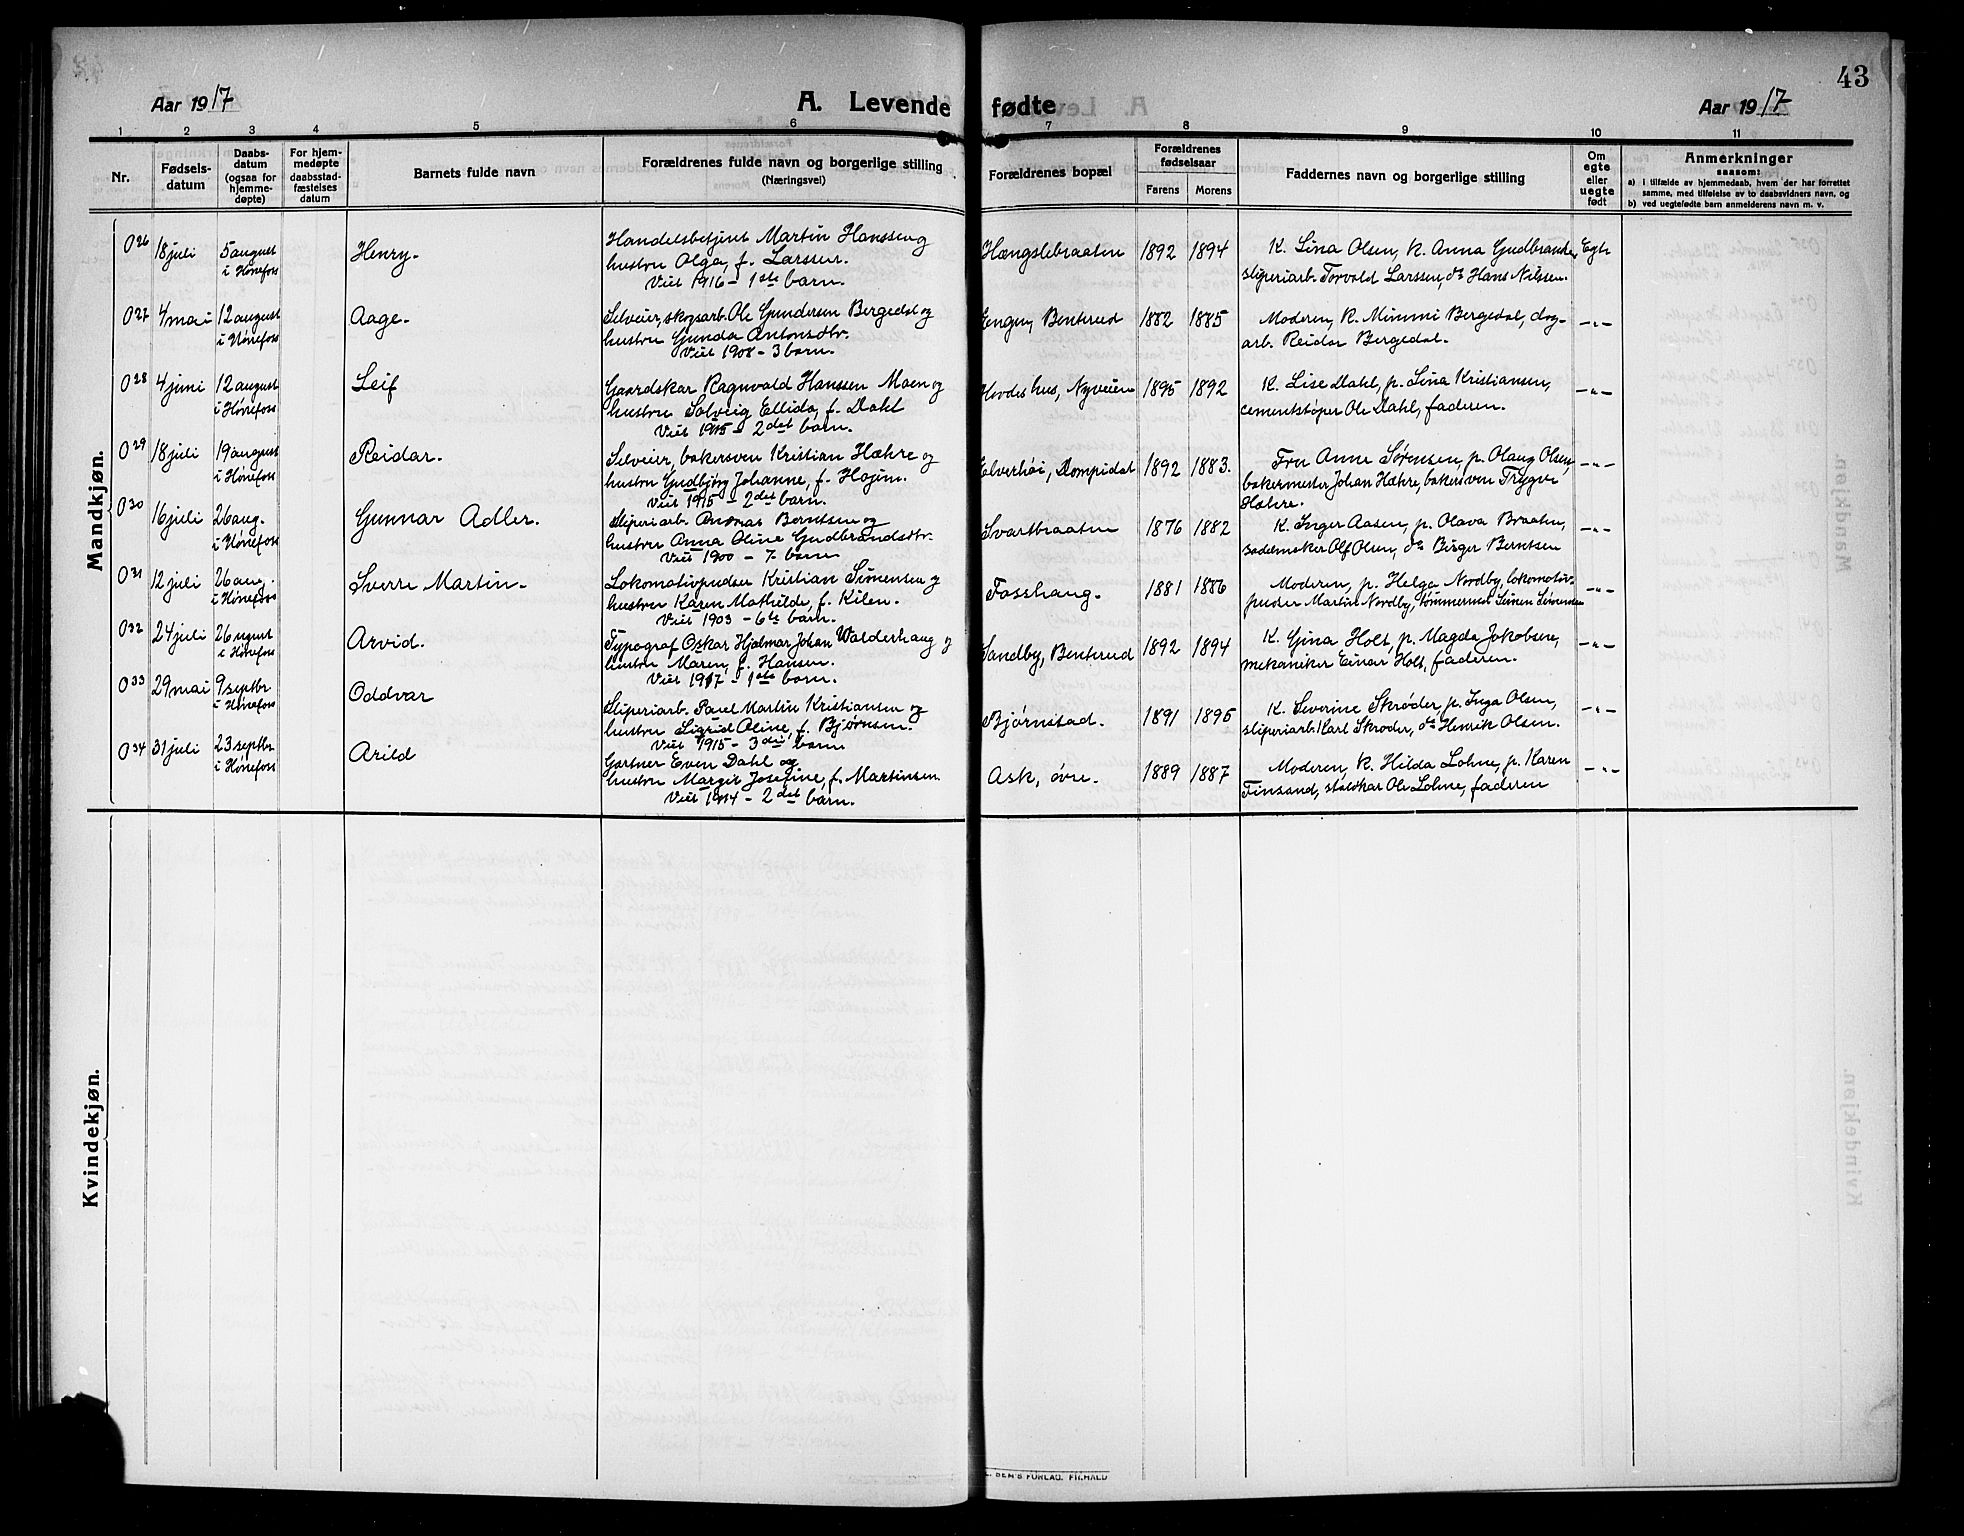 43
Aar 1917 A. Levende fødte Aar 1917
1 2 3 4 5 6 7 8 9 10 11
Nr.
Fødsels-
datum
Daabs-
datum
(ogsaa for
hjemme-
døpte)
For hjem-
medøpte
daabsstad-
fæstelses
datum
Barnets fulde navn
Forældrenes fulde navn og borgerlige stilling
(Næringsvei)
Forældrenes bopæl
Forældrenes
fødselsaar
Farens Morens
Faddernes navn og borgerlige stilling
Om
egte
eller
uegte
født
Anmerkninger
saasom:
a) I tilfælde av hjemmedaab, hvem der har forrettet
samme, med tilføielse av to daabsvidners navn, og
b) ved uegtefødte barn anmelderens navn m. v.
Mandkjøn.
O26 18 juli 5 august i Hønefoss Henry.
Handelsbetjent Martin Hanssen og
hustru Olga, f. Larssen.
Viet 1916 - 1ste barn.
Hængslebraaten 1892 1894
K. Lina Olsen, K. Anna Gudbrandsen,
sliperiarb. Torvald Larssen, do Hans Nilssen.
Egte
O27 4 mai 12 august i Hønefoss Aage.
Selveier, skogsarb. Ole Gundersen Bergedal og
hustru Gunda Antonsdtr.
Viet 1908 - 3 barn.
Engen, Benterud 1882 1885
Moderen, K. Mimmi Bergedal, dag-
arb. Reidar Bergedal.
-"-
O28 4 juni 12 august i Hønefoss Leif
Gaardskar Ragnvald Hanssen Moen og
hustru Solveig Ellida, f. Dahl
Viet 1915 - 2det barn.
Hovdes hus, Nyveien 1895 1892
K. Lise Dahl, p. Lina Kristiansen,
cementstøper Ole Dahl, faderen.
-"-
O29 18 juli 19 august i Hønefoss Reidar.
Selveier, bakersven Kristian Hæhre og
hustru Gudbjørg Johanne, f. Hojem.
Viet 1915 - 2det barn.
Elverhøi, Dompidal 1892 1883.
Fru Anne Sørensen, p. Olaug Olsen,
bakermester Johan Hæhre, bakersven Trygve
Hæhre.
-"-
O30 16 juli 26 aug. i Hønefoss Gunnar Adler.
Sliperiarb. Andreas Berntsen og
hustru Anna Oline Gudbrandsdtr.
Viet 1900 - 7. barn
Svartbraaten 1876 1882
K. Inger Aasen, p. Olava Braaten,
sadelmaker Olf Olsen, do Birger Berntsen
-"-
O31 12 juli 26 aug. i Hønefoss Sverre Martin.
Lokomotivpudser Kristian Simensen og
hustru Karen Mathilde, f. Kilen.
Viet 1903 - 6te barn.
Fosshaug. 1881 1886
Moderen, p. Helga Nordby, lokomotiv-
pudser Martin Nordby, tømmermand Simen Simensen
-"-
O32 24 juli 26 august i Hønefoss Arvid.
Typograf Oskar Hjalmar Johan Walderhaug og
hustru Maren, f. Hansen.
Viet 1917 - 1ste barn.
Sandby, Benterud 1892 1894
K. Gina Holt, p. Magda Jakobsen,
mekaniker Einar Holt, faderen.
-"-
O33 29 mai 9 septbr i Hønefoss Oddvar
Sliperiarb. Pavel Martin Kristiansen og
hustru Sigrid Oline, f. Bjørnsen.
Viet 1915 - 3die barn
Bjørnstad. 1891 1895
K. Severine Skrøder, p. Inga Olsen,
sliperiarb. Karl Skrøder, do Henrik Olsen.
-"-
O34 31 juli 23 septbr. i Hønefoss Arild
Gartner Even Dahl og
hustru Margit Josefine, f. Martinsen
Viet 1914 - 2det barn.
Ask, øvre. 1889 1887
Moderen, K. Hilda Lohne, p. Karen
Finsand, staldkar Ole Lohne, faderen
-"-
Kvindekjøn.
SEM'S FORLAG. FR.HALD